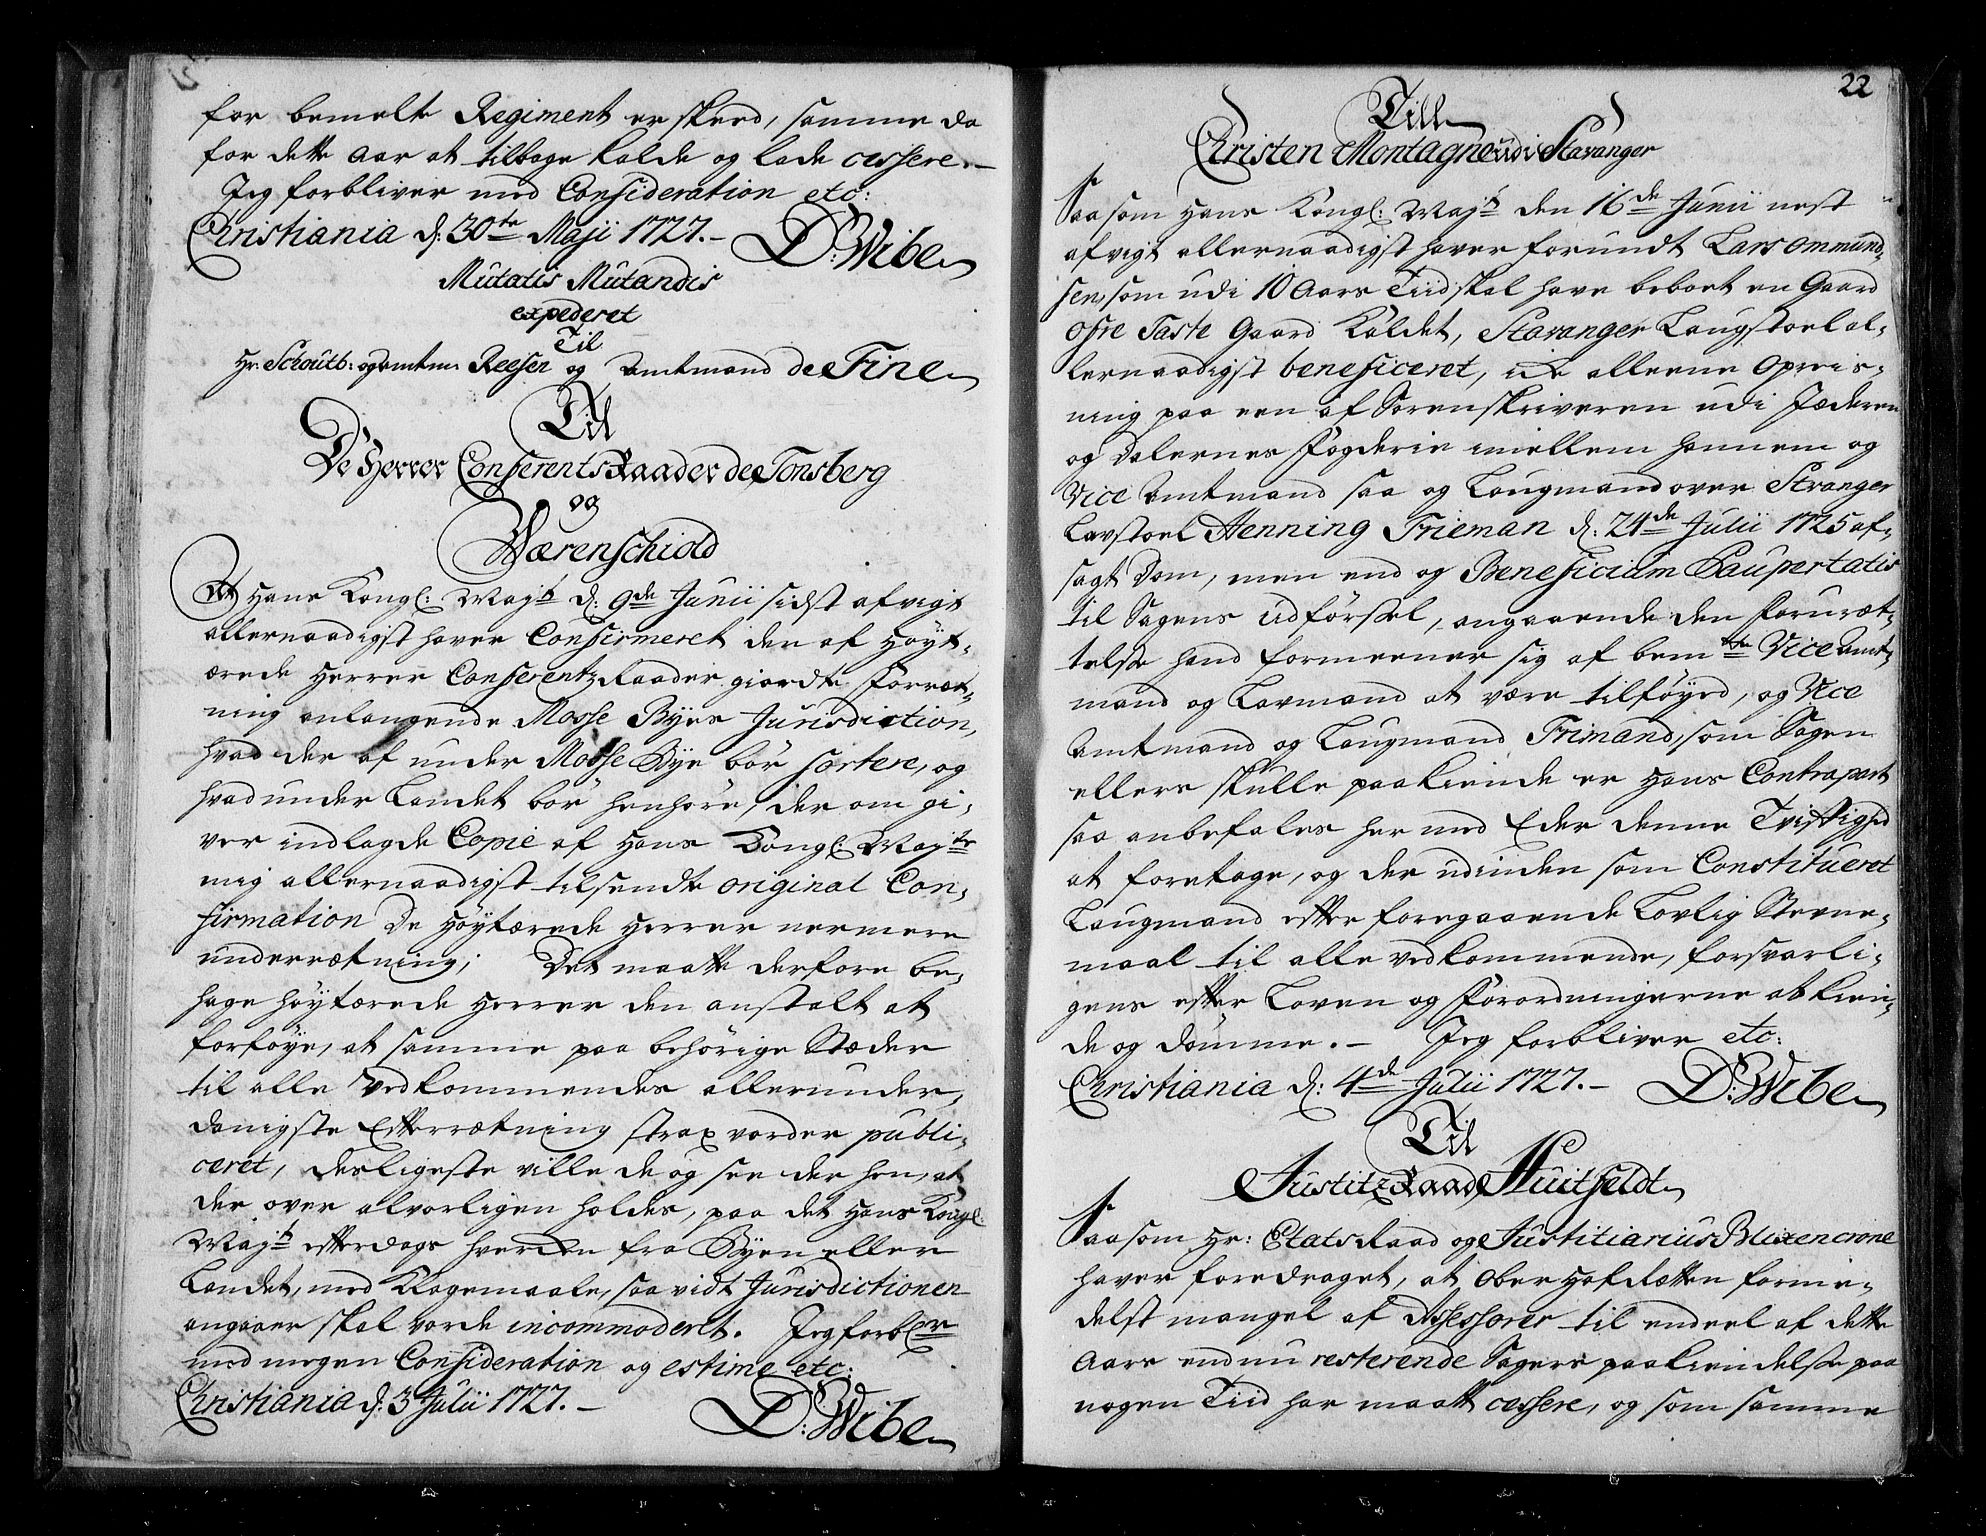 for bemelte Regiment er skeed, samme da
for dette Aar at tilbage kalde og lade cessere.–
Jeg forbliver med Consideration etc:
Christiania d: 30te Maji 1727.– D: Wibe
Mutatis Mutandis
expederet
Til
Hr. Schoutb: og Amtm: Reeser og Amtmand de Fine
Til
De Herrer ConferentsRaader de Tonsberg
og
Wærenschiold
At Hans Kongl: Majt d: 9de Junii sidst afvigt
allernaadigst haver Confirmeret den af Høyt-
ærede Herrer ConferentzRaader giordte Forret-
ning anlangende Mosse Byes Jurisdiction,
hvad der af under Mosse Bye bør sortere, og
hvad under Landet bør henhøre, der om gi-
ver indlagde Copie af Hans Kongl: Majts
mig allernaadigst tilsendte original Con-
firmation De Høytærede Herrer nermere
underrætning; Det maatte derfore be-
hage høytærede Herrer den anstalt at
forføye, at samme paa behørige Stæder
til alle Vedkommendes allerunder-
danigste Efterrætning strax vorder publi-
ceret, desligeste ville de og see der hen, at
der over alvorligen holdes, paa det Hans Kongl:
Majt efterdags hverken fra Byen eller
Landet, med Klagemaale, saa vidt Jurisdictionen
angaaer skal vorde incommoderet. Jeg forbler
med megen Consideration og estime etc:
Christiania d: 3 Julii 1727.– D: Wibe
22
Till
Christen Montagne udi Stavanger
Saasom Hans Kongl: Majt den 16de Junii nest
afvigt allernaadigst haver forundt Lars Ommund-
sen, som udi 10 Aars Tiid skal have beboet en Gaard
ofre Taste Gaard kaldet, Stavanger Laugstoel al-
lernaadigst beneficeret, icke alleene Opreis-
ning paa een af Sorenskriveren udi Jæderen
og Dalernes Fogderie imellem hannem og
Vice Amtmand saa og Laugmand over Stvanger
Lavstoel Henning Frieman d: 24de Julii 1725 af-
sagt Dom, men end og Beneficium Paupertatis
til Sagens udførsel, angaaende den foruræt-
telse hand formeener sig af bemte Vice Amt-
mand og Lavmand at være tilføyed, og Vice
Amtmand og Laugmand Frimand, som Sagen
ellers skulle paakiende er Hans Contrapart
saa anbefales her med Eder denne Tvistighed
at foretage, og der udinden som Constitueret
Laugmand efter foregaaende Lovlig Stevne-
maal til alle vedkommende, forsvarli-
gens efter Loven og Forordningerne at kien-
de og dømme.– Jeg forbliver etc:
Christiania d: 4de Julii 1727.– D: Wibe
Til
JustitzRaad Huitfeldt
Saasom Hr: EtatsRaad og Justitiarius Blixencrone
haver foredraget, at Ober Hof Rætten forme-
delst mangel af Assessorer til endeel af dette
Aars endnu resterende Sagers paakiendelse paa
nogen Tiid har maatt cessere, og som samme